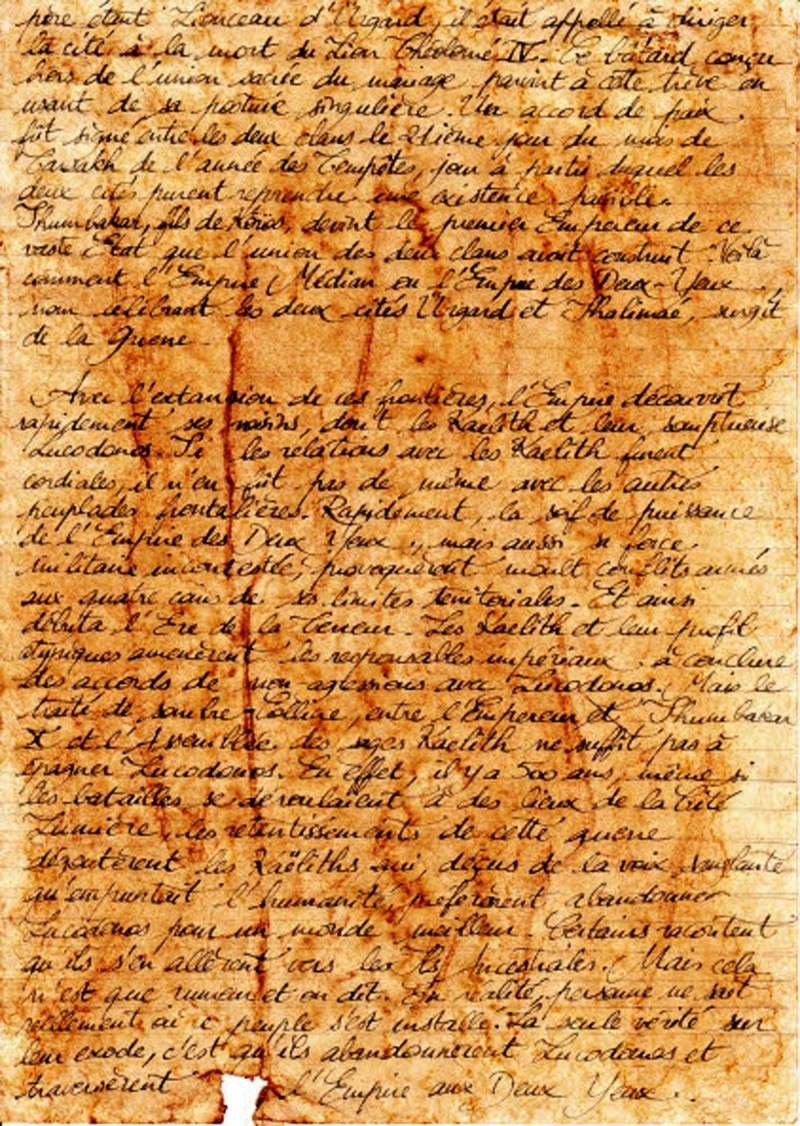 père étant Lionceau d'Urgard, il était appellé à diriger
la cité à la mort du Lion Théolomé IV. Ce bâtard conçu
hors de l'union sacrée du mariage parvint à cette trêve en
usant de sa posture singulière. Un accord de paix
fût signé entre les deux clans le 21ième jour du mois de
Tarsakh de l'année des Tempêtes, jour à partir duquel les
deux cités purent reprendre une existence paisible.
Thumbakar, fils de Koras, devint le premier Empereur de ce
vaste État que l'union des deux clans avait construit. Voilà
comment l'Empire Médian ou l'Empire des Deux-Yeux,
nom célébrant les deux cités Urgard et Thalimaé, surgit
de la Guerre.
Avec l'extansion de ces frontières, l'Empire découvrit
rapidement ses voisins, dont les Kaelith et leur somptueuse
Lucodonos. Si les relations avec les Kaelith furent
cordiales, il n'en fût pas de même avec les autres
peuplades frontalières. Rapidement, la soif de puissance
de l'Empire des Deux Yeux, mais aussi sa force
militaire incontestée, provoquèront moult conflits armés
aux quatre coins de ses limites territoriales. Et ainsi
débuta l'Ère de la Terreur. Les Kaelith et leur profil
atypiques amenèrent les responsables impériaux à conclure
des accords de non agressions avec Lucodonos. Mais le
traité de Sombre-Colline, entre l'Empereur et Thumbakar
X et l'Assemblée des sages Kaelith ne suffit pas à
épargner Lucodonos. En effet, il y a 500 ans, même si
les batailles se déroulaient à des lieux de la Cité
Lumière, les retentissements de cette guerre
dégoutèrent les Kaëliths qui, déçus de la voix sanglante
qu'empruntait l'humanité, préférèrent abandonner
Lucodonos pour un monde meilleur. Certains racontent
qu'ils s'en allèrent vers les Ils Ancestrales. Mais cela
n'est que rumeur et on dit. En réalité, personne ne sait
réellement où ce peuple s'est installé. La seule vérité sur
leur exode, c'est qu'ils abandonnèrent Lucodonos et
traversèrent l'Empire aux Deux Yeux..